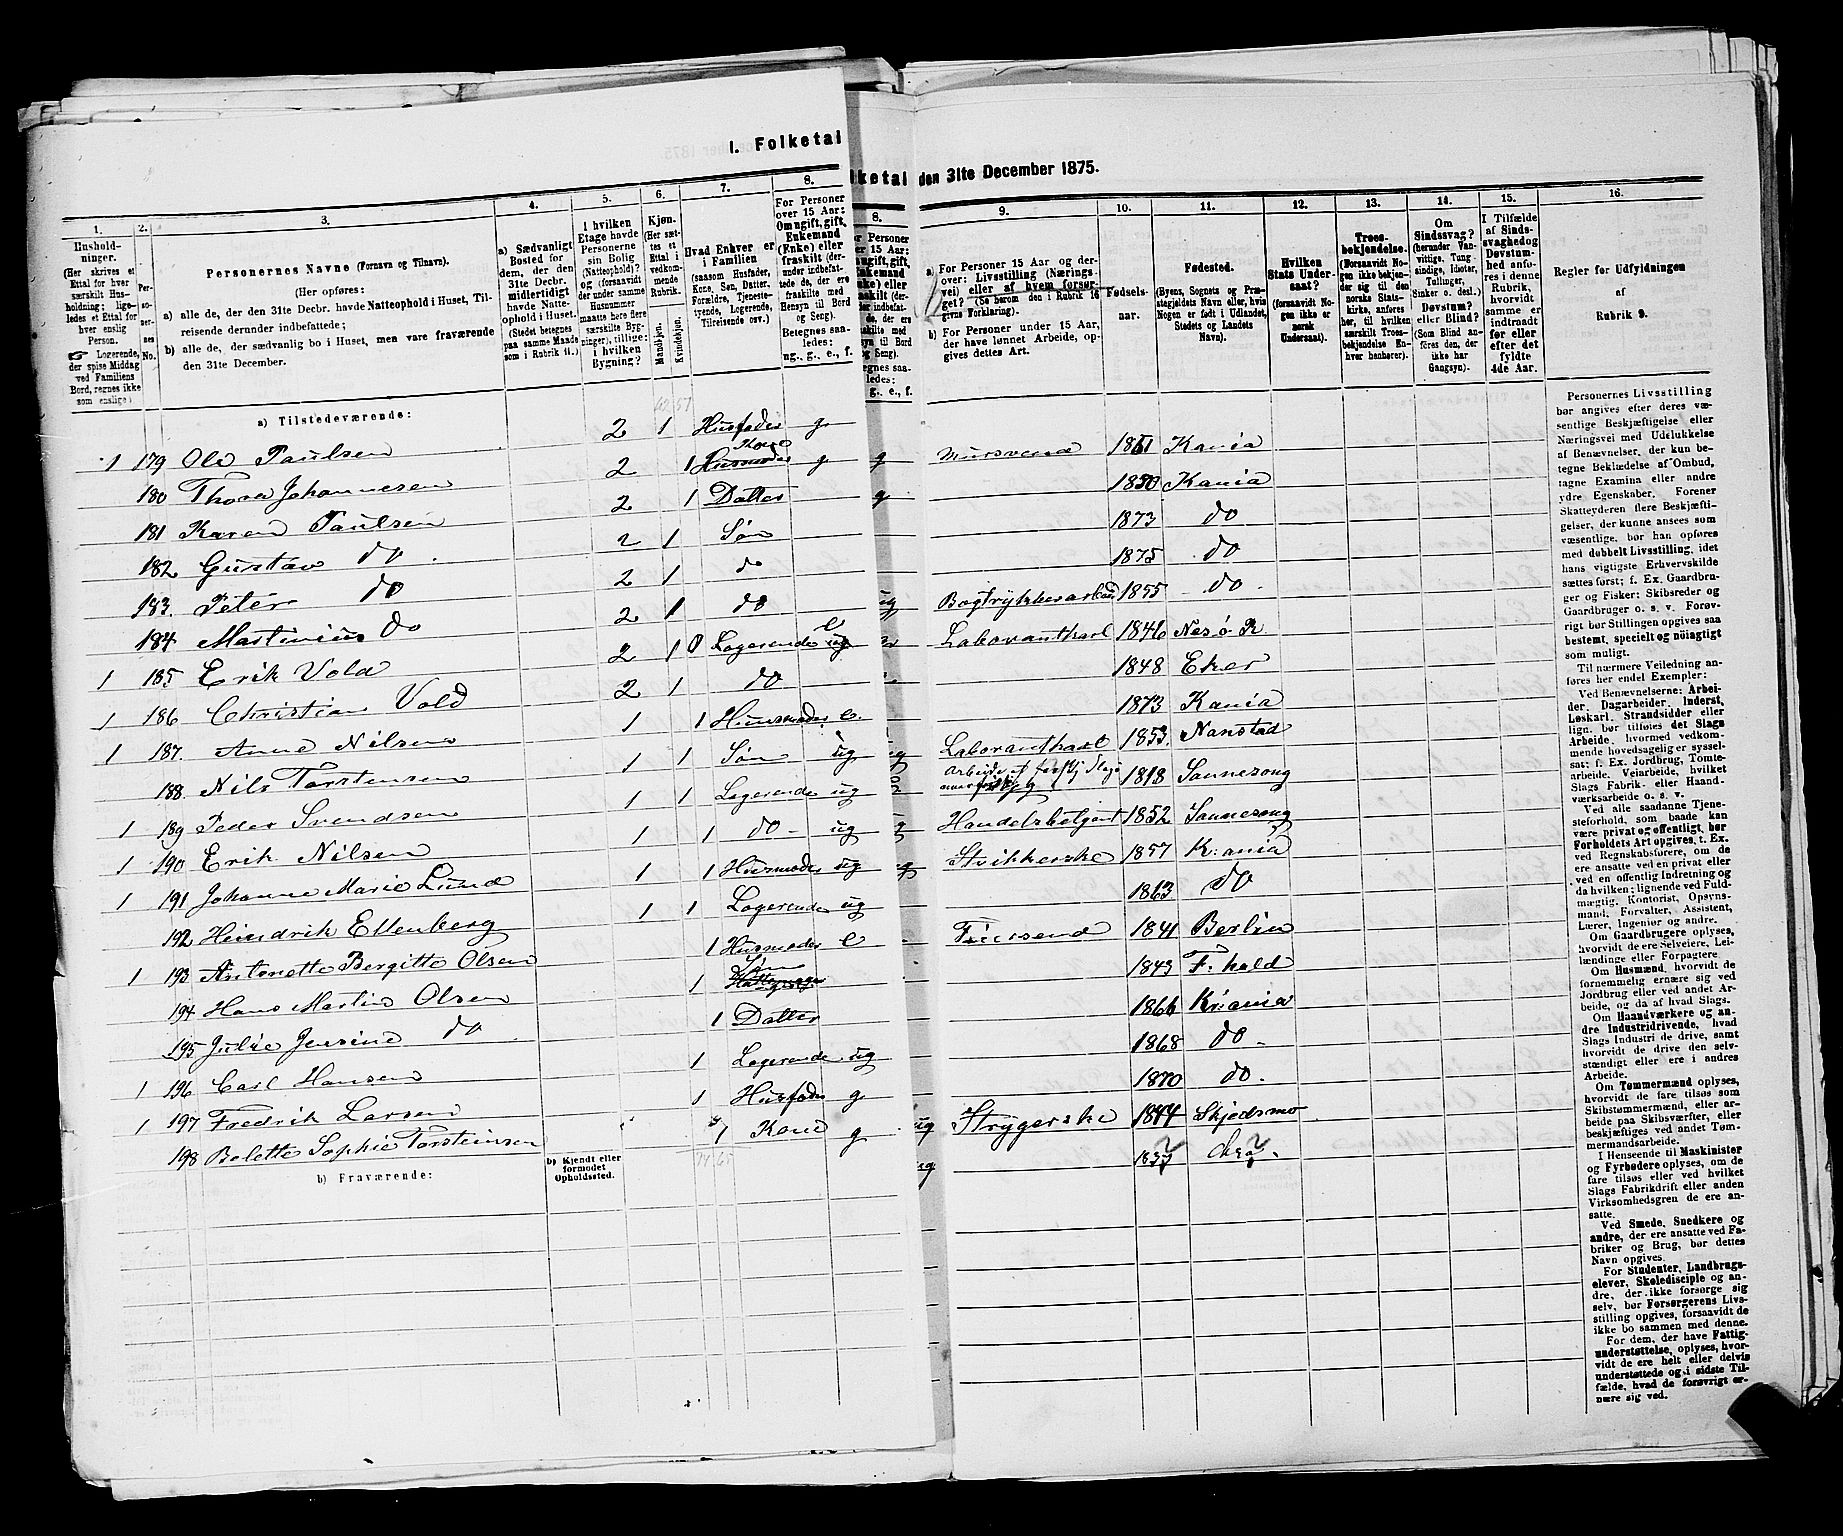 I. Folketal
lketal den 31te December 1875.
1. 2. 3. 4. 5. 6. 7. 8. 8. 9. 10. 11. 12. 13. 14. 15. 16.
Husholdninger. (Her skrives et Ettal for hver særskilt Husholdning; ligeledes et Ettal for hver enslig Person. ☞ Logerende, der spise Middag ved Familiens Bord, regnes ikke som enslige)
Personernes No.
Personernes Navne (Fornavn og Tilnavn).
(Her opføres:
a) alle de, der den 31te Decbr. havde Natteophold i Huset, Tilreisende derunder indbefattede;
b) alle de, der sædvanlig bo i Huset, men vare fraværende den 31te December.
a) Sædvanligt Bosted for dem, der den 31te Decbr. midlertidigt havde Natteophold i Huset. (Stedet betegnes paa samme Maade som i Rubrik 11.)
I hvilken Etage havde Personerne sin Bolig (Natteophold)? og (forsaavidt der under samme Husnummer maatte høre flere særskilte Bygninger), tillige: i hvilken Bygning?
Kjøn. (Her sættes et Ettal i vedkommende Rubrik.
Mandkjøn. Kvindekjøn.
Hvad Enhver er i Familien (saasom Husfader, Kone, Søn, Datter, Forældre, Tjenestetyende, Logerende, Tilreisende osv.)
For Personer over 15 Aar: Om ugift, gift, Enkemand (Enke) eller fraskilt (derunder indbefattede de, der ere fraskilte med Hensyn til Bord og Seng). Betegnes saaledes: ug., g., e., f.
a) For Personer 15 Aar og derover: Livsstilling (Næringsvei) eller af hvem forsørget? (Se herom den i Rubrik 16 givne Forklaring).
b) For Personer under 15 Aar, der have lønnet Arbeide, opgives dettes Art.
Fødselsaar.
Fødested. (Byens, Sognets og Præstegjeldets Navn eller, hvis Nogen er født i Udlandet, Stedets og Landets Navn).
Hvilken Stats Undersaat? (forsaavidt Nogen ikke er norsk Undersaat).
Troesbekjendelse. (Forsaavidt Nogen ikke bekjender sig til den norske Statskirke, anføres her, til hvilken særskilt Troesbekjendelse Enhver henhører).
Om Sindssvag? (herunder Vanvittige, Tungsindige, Idioter, Tullinger, Sinker o. desl.) Døvstum? eller Blind? (Som Blind anføres den, der ikke har Gangsyn).
I Tilfælde af Sindssvaghed og Døvstumhed anføres i denne Rubrik, hvorvidt samme er indtraadt før eller efter det fyldte 4de Aar.
Regler for Udfyldningen af Rubrik 9.
a) Tilstedeværende:
1 179 Ole Paulsen 2 1 Husfader g Mursvend 1851 Kania
180 Thora Johannesen 2 1 Kone g g 1850 Kania
181 Karen Paulsen 2 1 Datter 1873 do
182 Gustav do 2 1 Søn 1875 do
183 Peter do 2 1 do ug Bogtrykkerarbeid 1855 do
184 Martinius do 2 1 do Laborantkarl 1846 Nesø
1 185 Erik Vold 2 1 Logerende e 1848 Eker
1 186 Christian Vold 2 1 do 1873 Kania
1 187 Anne Nilsen 1 1 Husmoder e. 1853 Nanstad
188 Nils Torstensen 1 1 Søn ug Laborantkarl
1 189 Peder Svendsen 1 1 Logerende ug 1818 Sannesong
1 190 Erik Nilsen 1 1 do ug Handelsbetjent 1852 Sannesong
1 191 Johanne Marie Lund 1 1 Husmoder ug Strikkerske 1857 Kr:ania
192 Heindrik Ellenberg 1 1 Logerende ug 1863 do
1 193 Antonette Bergitte Olsen 1 Husmoder e 1841 Berlin
194 Hans Martin Olsen 1 Søn 1843 F:hald
195 Julie Jensine do 1 Datter 1866 Kr:ania
1 196 Carl Hansen 1 Logerende ug 1868 do
1 197 Fredrik Larsen 1 Husfader g 1870 do.
198 Belette Sophie Torsteinsen 1 Kone g ug Strygerske 1844 Skjedsmo
b) Fraværende:
b) Kjendt eller formodet Opholdssted.
Personernes Livsstilling
bør angives efter deres væ-
sentlige Beskjæftigelse eller
Næringsvei med Udelukkelse
af Benævnelser, der kun be-
tegne Beklædelse af Ombud,
tagne Examina eller andre
ydre Egenskaber. Forener
Skatteyderen flere Beskjæfti-
gelser, der kunne ansees som
væsentlige, bør han opføres
med dobbelt Livsstilling, idet
hans vigtigste Erhvervskilde
sættes først; f. Ex. Gaardbru-
ger og Fisker; Skibsreder og
Gaardbruger o. s. v. Forøv-
rigt bør Stillingen opgives saa
bestemt, specielt og nøiagtigt
som muligt.
Til nærmere Veiledning an-
føres her endel Exempler:
Ved Benævnelserne: Arbei-
der, Dagarbeider, Inderst,
Løskarl, Strandsidder eller
lign. bør tilføies det Slags
Arbeide, hvormed vedkom-
mende hovedsagelig er syssel-
sat; f. Ex. Jordbrug, Tomte-
arbeide, Veiarbeide, hvilket
Slags Fabrik- eller Haand-
værksarbeide o. s. v.
Ved alle saadanne Tjene-
steforhold, som baade kan
være privat og offentligt, bør
Forholdets Art opgives, t. Ex.
ved Regnskabsførere, om de
ere ansatte ved en privat eller
ved en offentlig Indretning og
da hvilken; lignende ved Fuld-
mægtig, Kontorist, Opsyns-
mand, Forvalter, Assistent,
Lærer, Ingeniør og andre.
Om Gaardbrugere oplyses,
hvorvidt de ere Selveiere, Lei-
lændinge eller Forpagtere.
Om Husmænd, hvorvidt de
fornemmelig ernære sig ved
Jordbrug eller ved andet Ar-
beide, og da af hvad Slags.
Om Haandværkere og an-
dre Industridrivende, hvad
Slags Industri de drive, samt
hvorvidt de drive den selv-
stændigt eller ere i andres
Arbeide.
Om Tømmermænd oplyses,
hvorvidt de fare tilsøs som
Skibstømmermænd, eller ar-
beide paa Skibsværfter, eller
beskjæftiges ved andet Tøm-
mermandsarbeide.
I Henseende til Maskinister
og Fyrbødere oplyses, om de
fare tilsøs eller ved hvilket
Slags Fabrikdrift eller anden
Virksomhedsgren de ere an-
satte.
Ved Smede, Snedkere og
andre, der ere ansatte ved Fa-
briker og Brug, bør dettes
Navn opgives.
For Studenter, Landbrugs-
elever, Skoledisciple og an-
dre, der ikke forsørge sig
selv, bør Forsørgerens Livs-
stilling opgives, forsaavidt de
ikke bo sammen med denne.
For dem, der have Fattig-
understøttelse, oplyses, hvor-
vidt de ere helt eller delvis
understøttede og i sidste Til-
fælde, hvad de forøvrigt er-
nære sig ved.